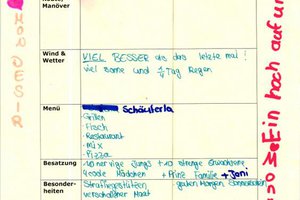 Manöver
MON DESIR
Wind &
Wetter
VIEL BESSER als das letzte mal!
viel Sonne und 1/2 Tag Regen
Ein hoch auf un
Menü
Schäuferla
- Grillen
- Fisch
- Restaurant
- Mix
- Pizza
Besatzung
10 nervige Jungs + 10 strenge Erwachsene
4 coole Mädchen + Prinz Familie + Joni
Besonder-
heiten
guten Morgen,
verschlafner Maat